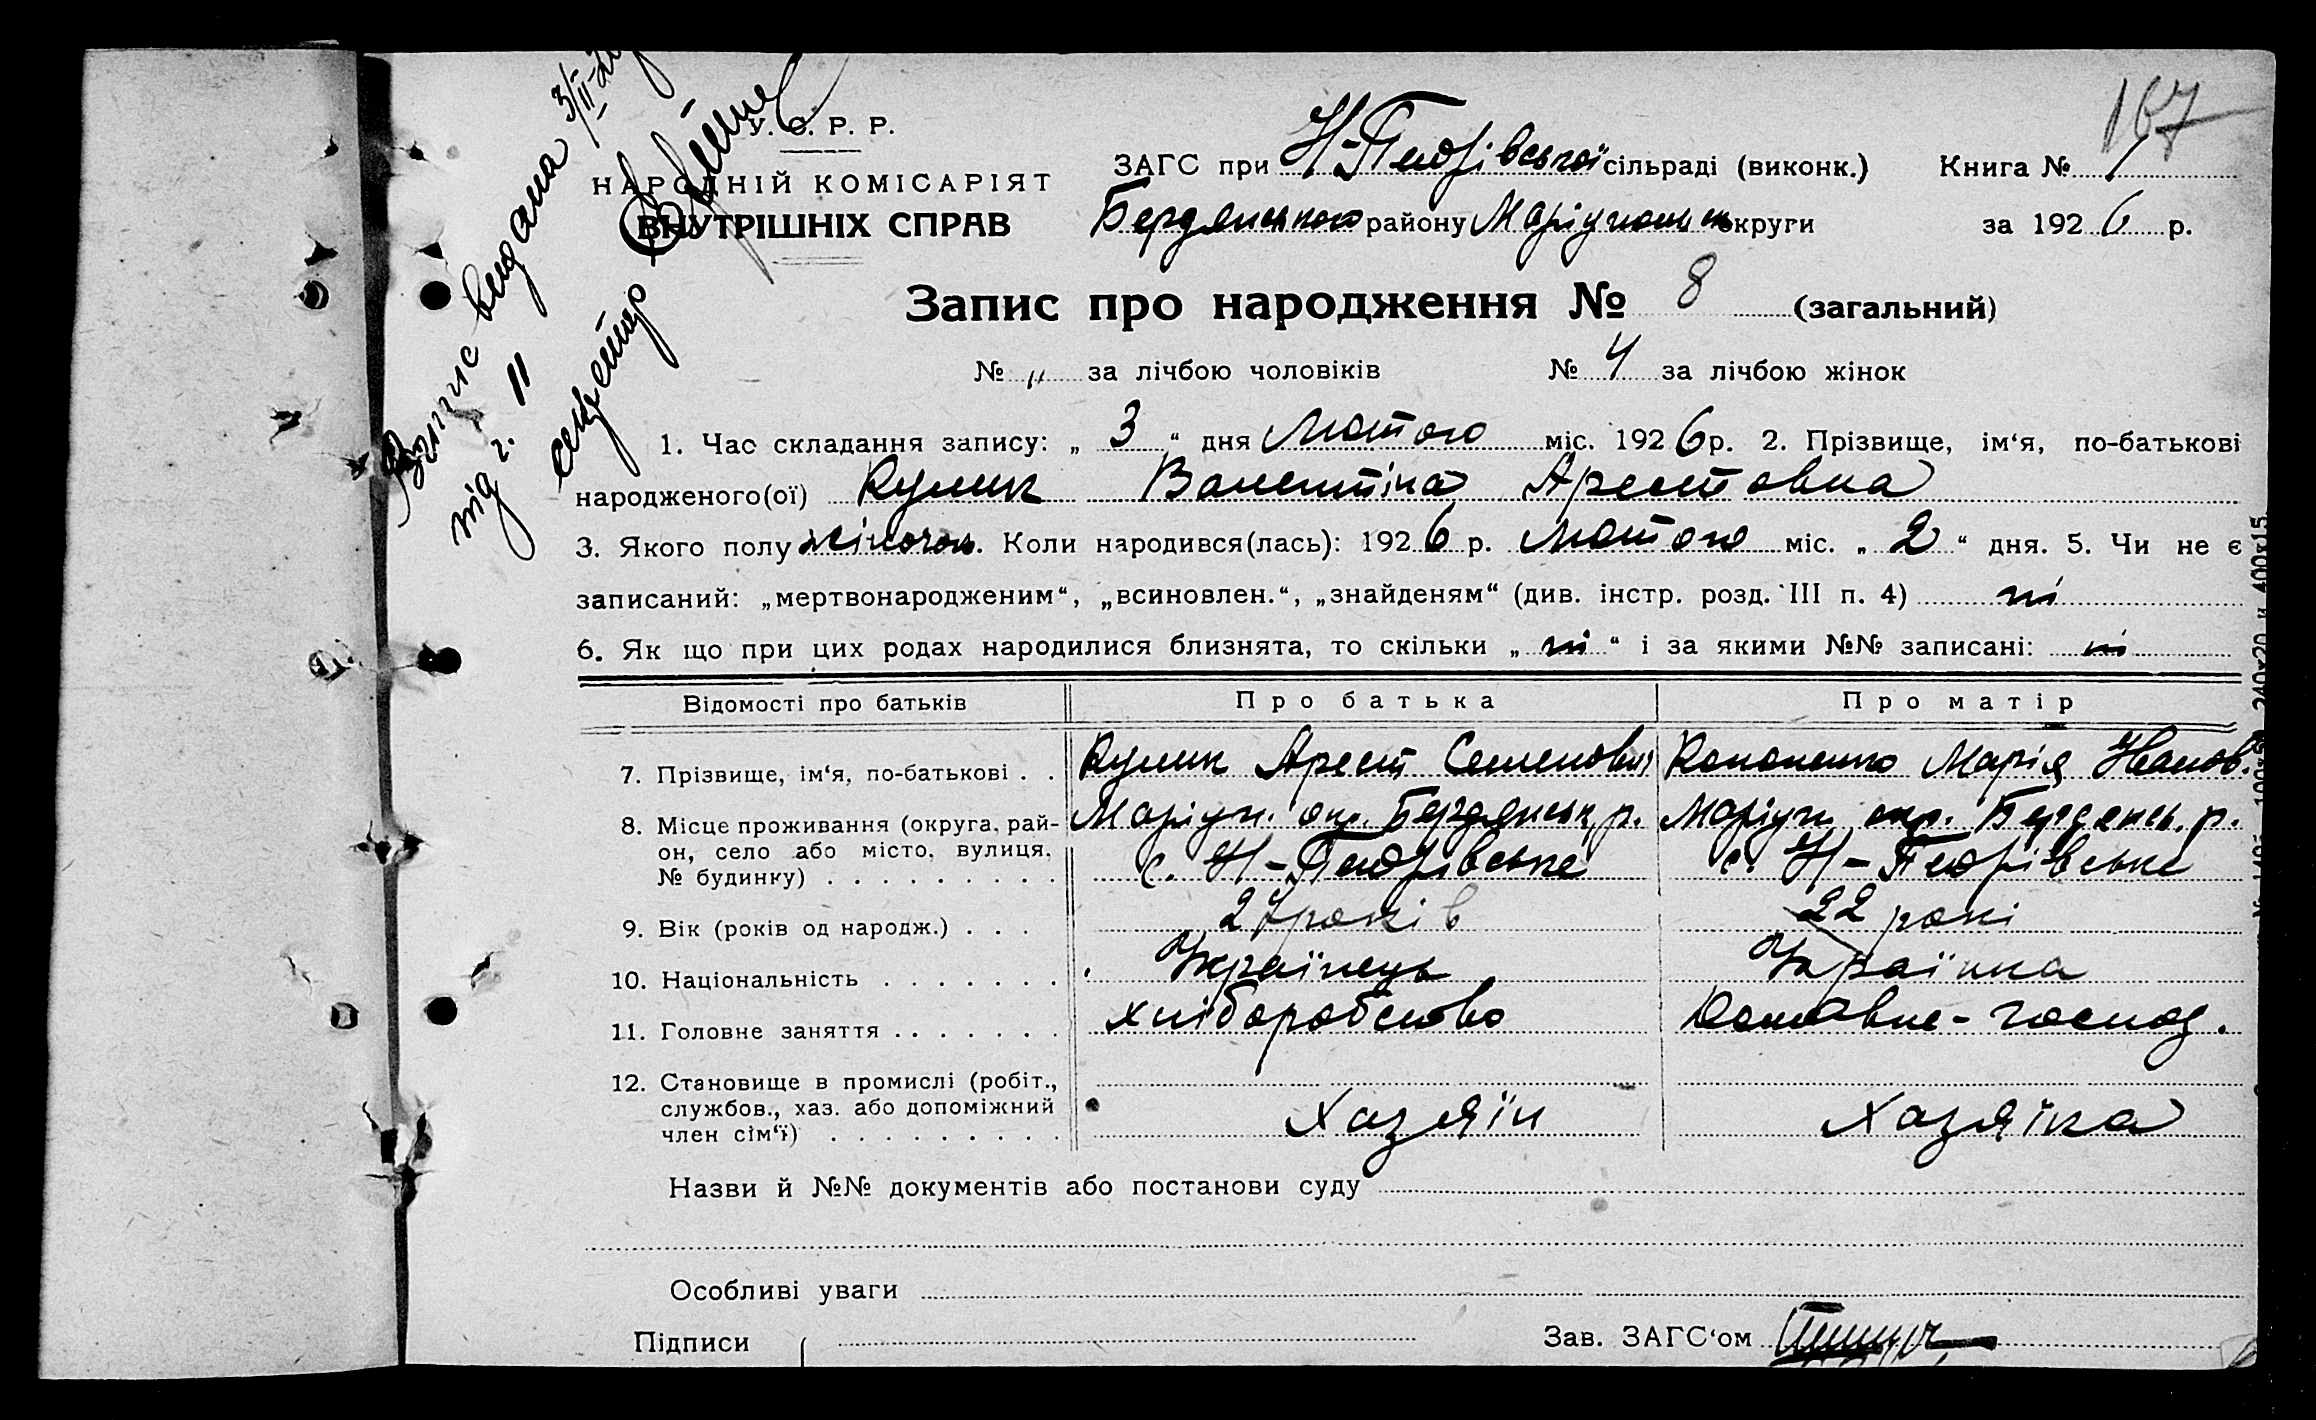 167
У. С. Р. Р.
НАРОДНІЙ КОМІСАРІЯТ
ВНУТРІШНІХ СПРАВ
Выпис видана 3/II-26
під г. 11
секретар
ЗАГС при Н-Петрівської сільраді (виконк.) Книга № 1
Бердянського району Маріупольськ округи за 1926 р.
Запис про народження № 8 (загальний)
№ „ за лічбою чоловіків № 4 за лічбою жінок
1. Час складання запису: „ 3 “ дня Лютого міс. 1926 р. 2. Прізвище, ім‘я, по-батькові
народженого(ої) Кулик Валентіна Арестовна
3. Якого полу жіночок. Коли народився(лась): 1926 р. Лютого міс. „ 2 “ дня. 5. Чи не є
записаний: „мертвонародженим“, „всиновлен.“, „знайденям“ (див. інстр. розд. III п. 4) ні
6. Як що при цих родах народилися близнята, то скільки „ ні “ і за якими №№ записані: ні
Відомості про батьків Про батька Про матір
7. Прізвище, ім‘я, по-батькові . . Кулик Арест Семенович Кононенко Марія Іванов.
8. Місце проживання (округа, рай- Маріуп. окр. Бердянськ. р. Маріуп. окр. Бердянсь. р.
он, село або місто, вулиця, с. Н-Петрівське с. Н-Петрівське
№ будинку) . . . . . . . . .
9. Вік (років од народж.) . . . 27 років 22 рокі
10. Національність . . . . . . . Українець Українка
11. Головне заняття . . . . . . . хліборобство Домавне-господ.
12. Становище в промислі (робіт.,
службов., хаз. або допоміжний Хазяїн Хазяїка
член сім‘ї) . . . . . . . . .
Назви й №№ документів або постанови суду
Особливі уваги
Підписи Зав. ЗАГС‘ом